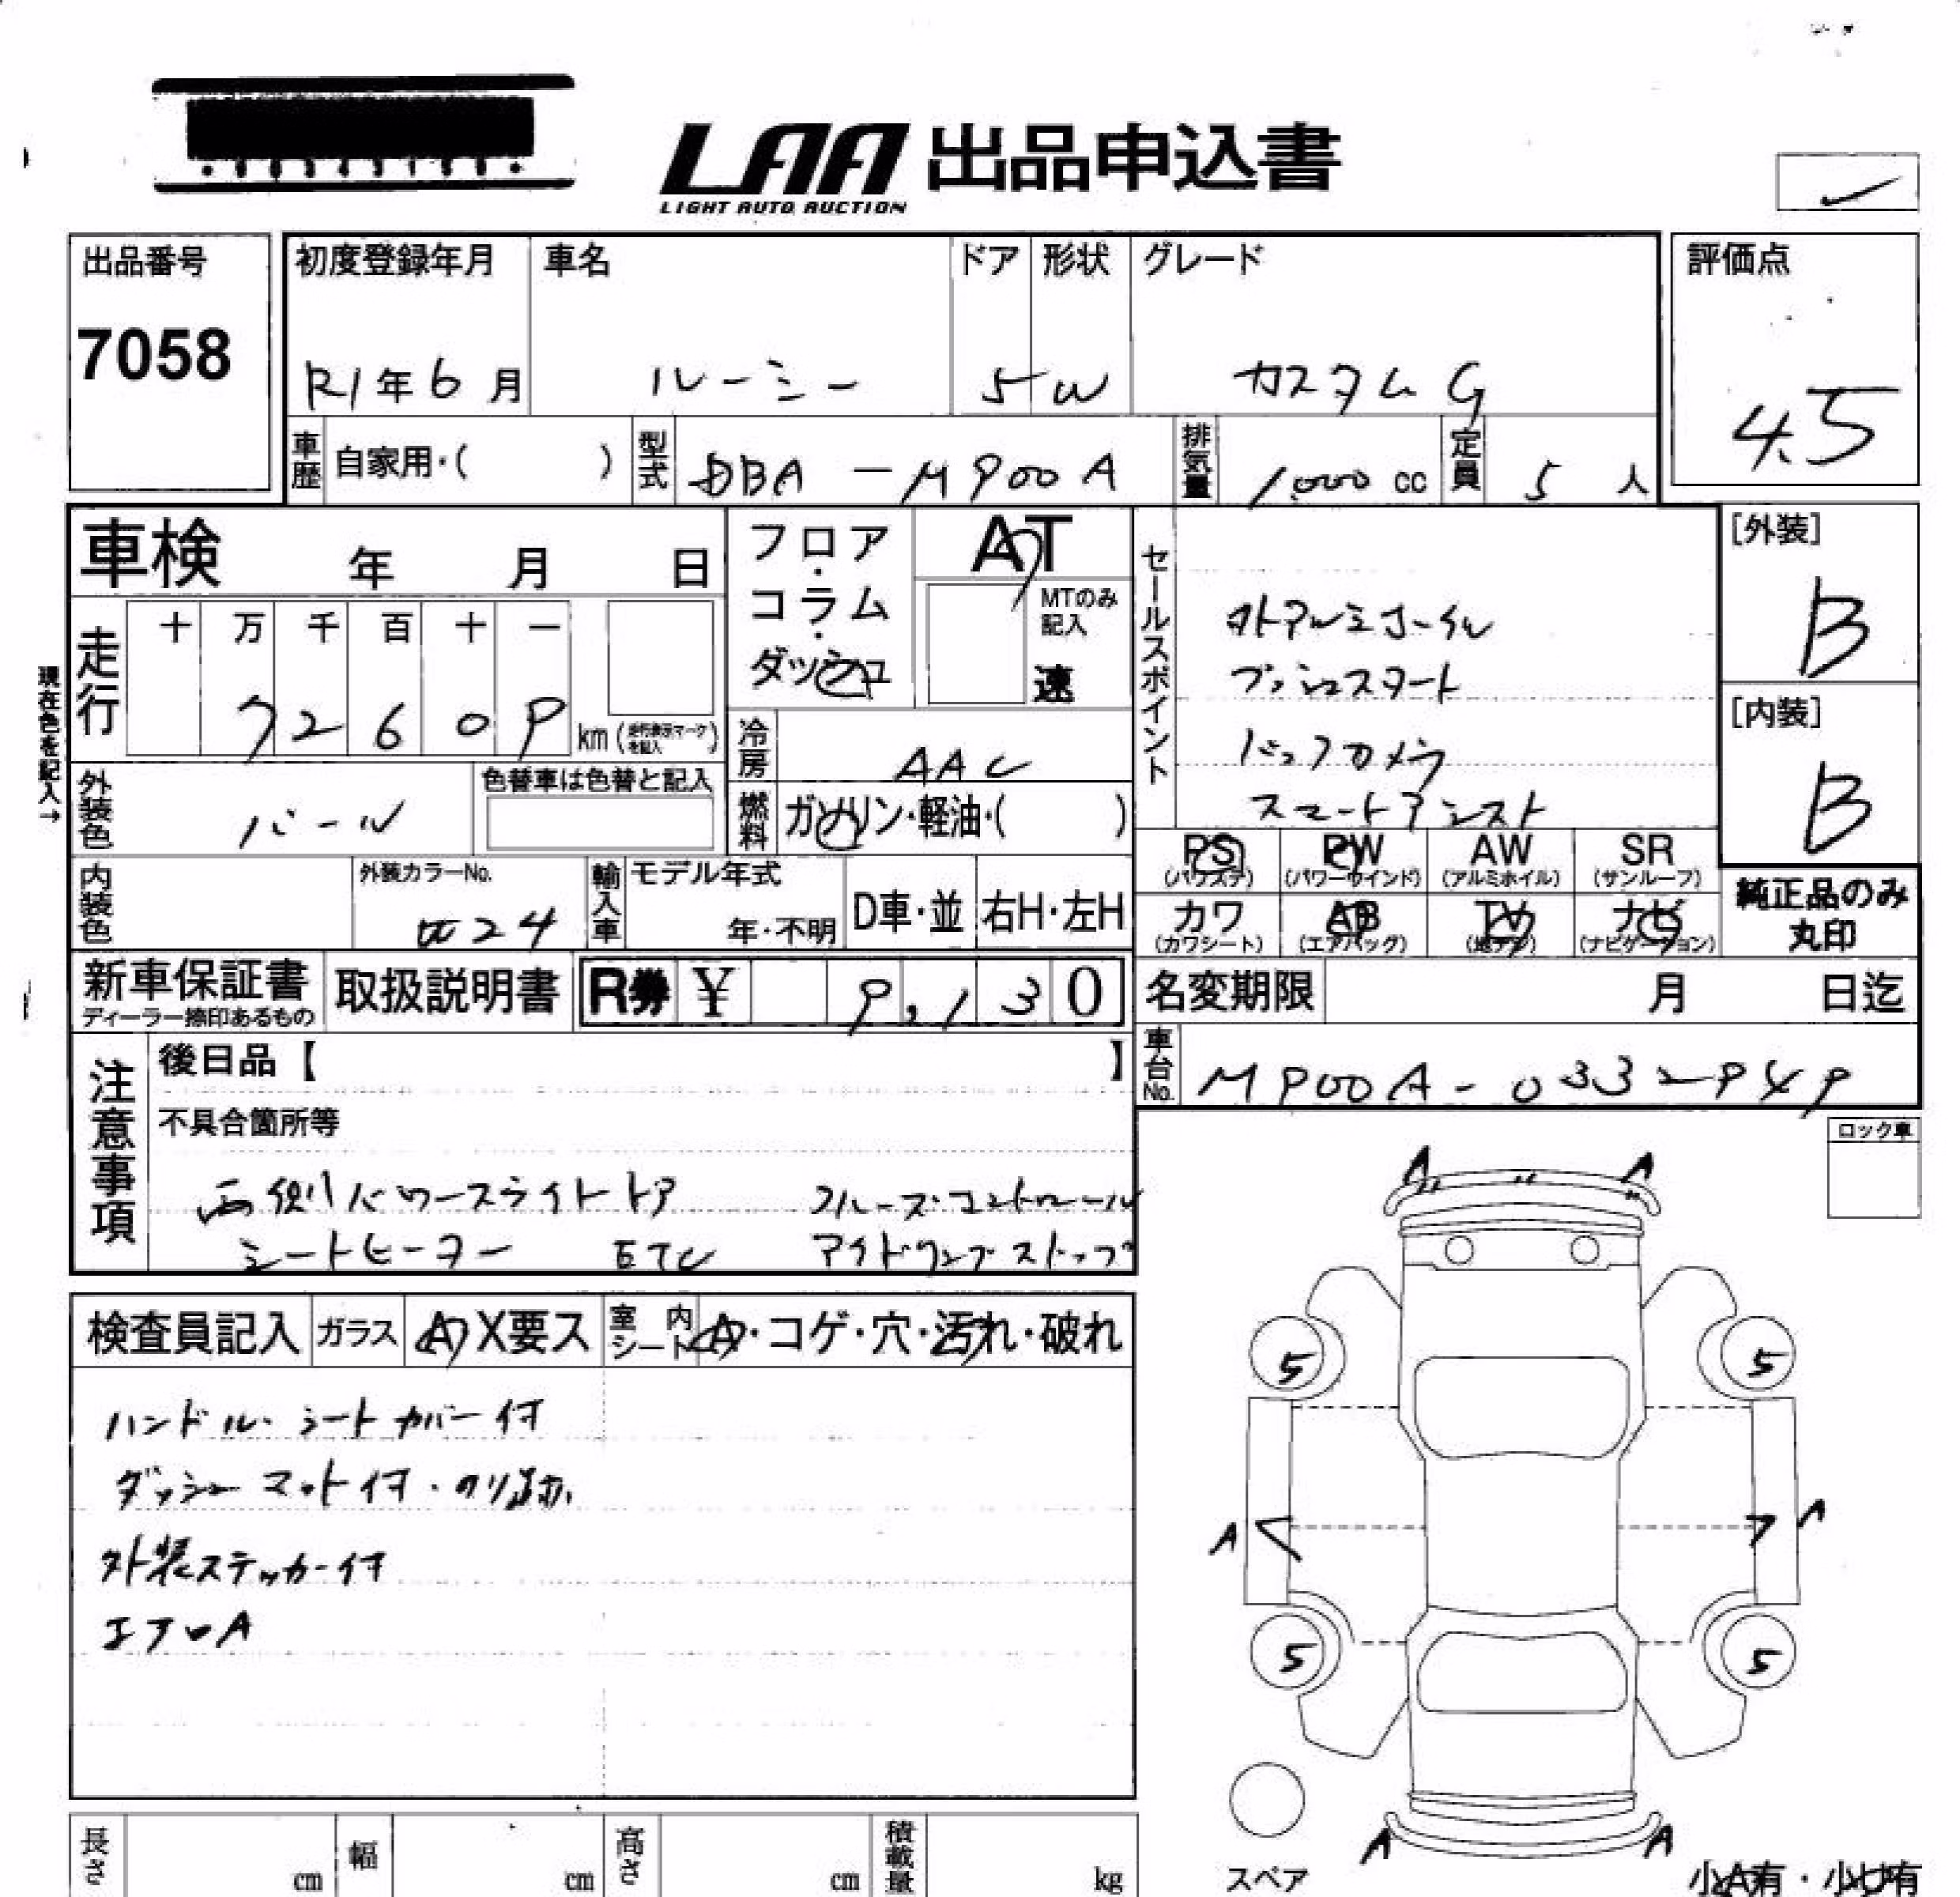 LAA 出品申込書
LIGHT AUTO AUCTION
出品番号
7058
初度登録年月
R1年6月
車名
ルーミー
ドア
5
形状
W
グレード
カスタムG
評価点
4.5
車歴
自家用・( )
型式
DBA-M900A
排気量
1,000 cc
定員
5 人
車検 年 月 日
フロア・コラム・ダッシュ
AT
MTのみ記入
速
セールスポイント
外アルミホイル
プッシュスタート
バックカメラ
スマートアシスト
[外装]
B
[内装]
B
現在色を記入→
走行
十 万 千 百 十 一
7 2 6 0 9
km(走行表示マークを記入)
冷房
AAC
外装色
パール
色替車は色替と記入
燃料
ガソリン・軽油・( )
PS (パワステ)
PW (パワーウインド)
AW (アルミホイル)
SR (サンルーフ)
カワ (カワシート)
AB (エアバッグ)
TV (地デジ)
ナビ (ナビゲーション)
純正品のみ丸印
内装色
外装カラーNo.
W24
輸入車
モデル年式
年・不明
D車・並
右H・左H
新車保証書
ディーラー捺印あるもの
取扱説明書
R券 ¥ 9,130
名変期限 月 日迄
車台No.
M900A-0332949
注意事項
後日品【 】
不具合箇所等
両側パワースライドドア クルーズコントロール
シートヒーター ETC アイドリングストップ
ロック車
検査員記入
ガラス
A X要ス
室内シート
A・コゲ・穴・汚れ・破れ
ハンドル・シートカバー付
ダッシュマット付・のり跡
外装ステッカー付
エアロA
A A
5 5
A A
5 5
A A
スペア
小A有・小U有
長さ cm
幅 cm
高さ cm
積載量 kg